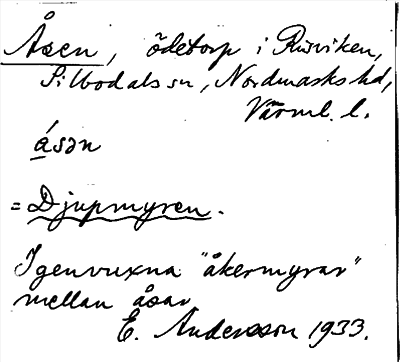 Åsen, ödetorp i Risviken,
Silbodals sn, Nordmarks hd,
Värml. l.
åsən
= Djupmyren.
Igenvuxna "åkermyrar"
mellan åsar
E. Andersson 1933.